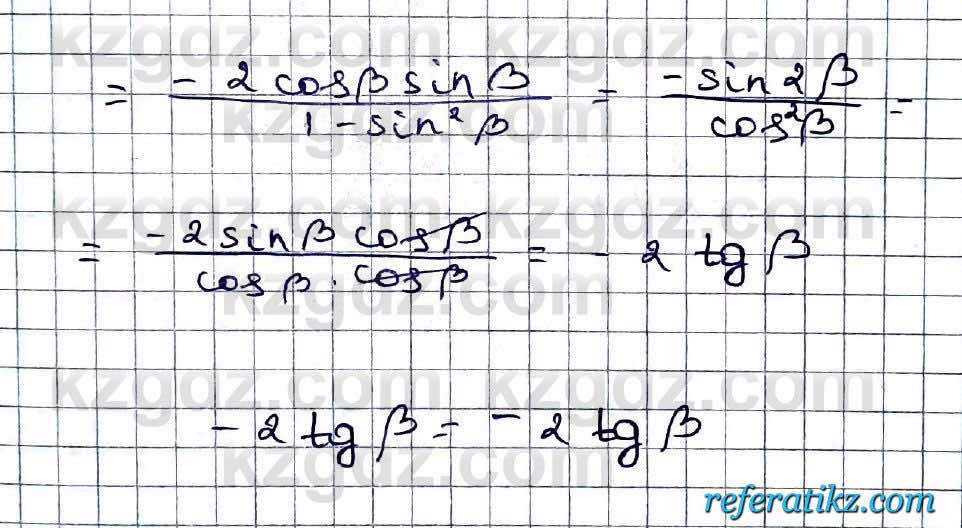 kzgdz.com kzgdz.com
= (-2cosβ sinβ)/(1-sin²β) = (-sin2β)/(cos²β) =
kzgdz.com
kzgdz.com kzgdz.com
= (-2sinβ cosβ)/(cosβ · cosβ) = -2 tgβ
kzgdz.com
kzgdz.com kzgdz.com
-2 tgβ = -2 tgβ
kzgdz.com
referatikz.com